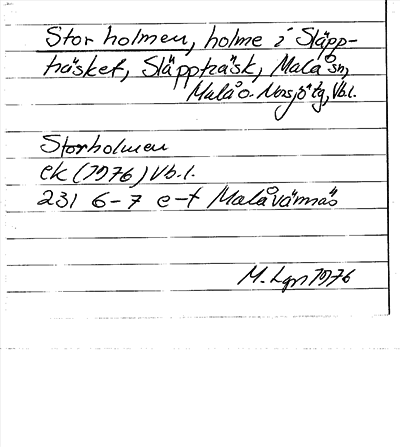 Storholmen, holme i Släpp-
träsket, Släppträsk, Malå sn,
Malå o. Norsjö tg, Vb.l.
Storholmen
ek (1976) Vb.l.
231 6-7 e-f Malåvännäs
M. Lgn 1976